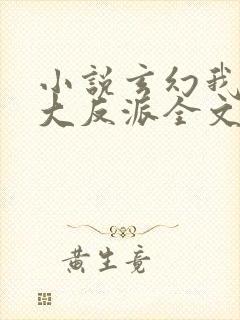 小说玄幻我
大反派全文
黄生竟